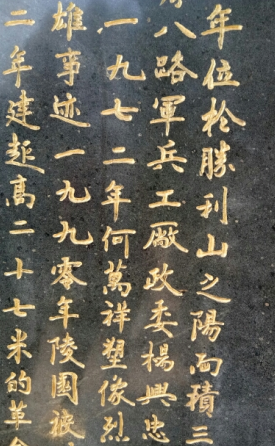 年位於勝利山之陽面積三
八路軍兵工廠政委楊興忠
一九七二年何萬祥塑像烈
雄事迹一九九零年陵園被
二年建起高二十七米的革命